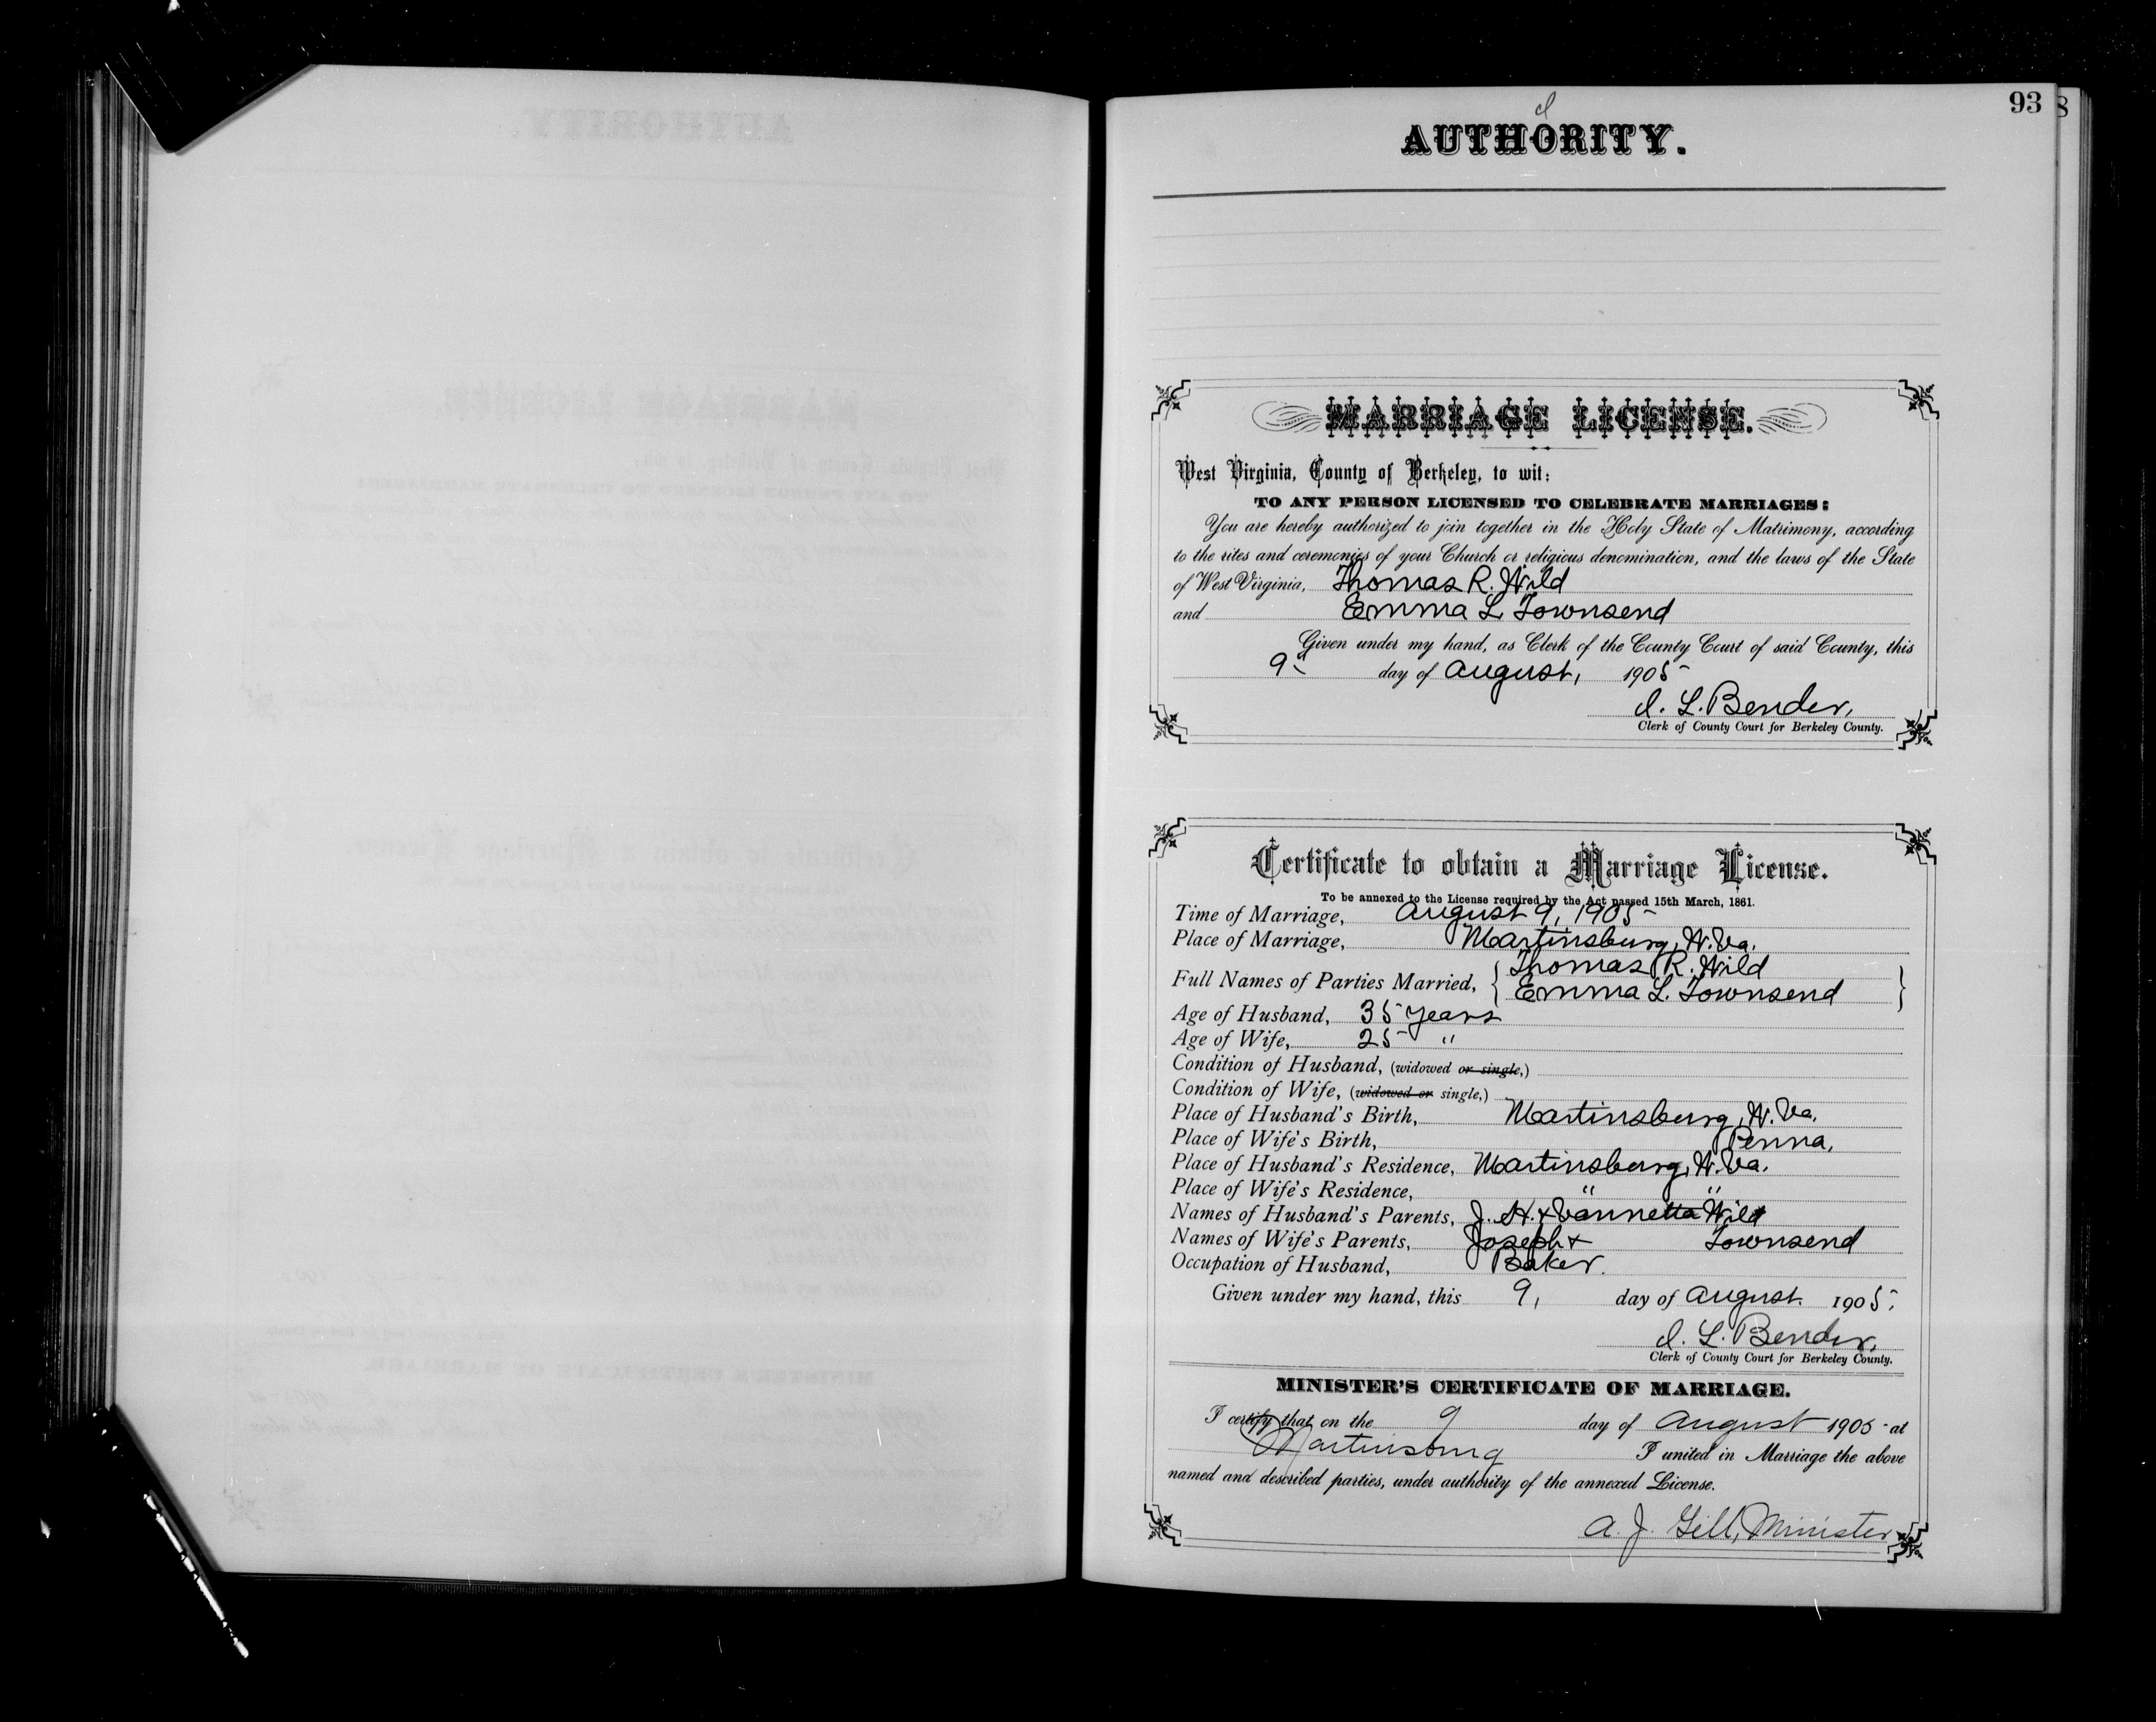 93
8
AUTHORITY.
MARRIAGE LICENSE.
West Virginia, County of Berkeley, to wit:
TO ANY PERSON LICENSED TO CELEBRATE MARRIAGES:
You are hereby authorized to join together in the Holy State of Matrimony, according
to the rites and ceremonies of your Church or religious denomination, and the laws of the State
of West Virginia, Thomas R. Wild
and Emma L. Townsend
Given under my hand, as Clerk of the County Court of said County, this
9 day of August, 1905
I. L. Bender,
Clerk of County Court for Berkeley County.
Certificate to obtain a Marriage License.
To be annexed to the License required by the Act passed 15th March, 1861.
Time of Marriage, August 9, 1905
Place of Marriage, Martinsburg, W. Va.
Full Names of Parties Married, { Thomas R. Wild
Emma L. Townsend }
Age of Husband, 35 years
Age of Wife, 25 "
Condition of Husband, (widowed or single,)
Condition of Wife, (widowed or single,)
Place of Husband's Birth, Martinsburg, W. Va.
Place of Wife's Birth, Penna.
Place of Husband's Residence, Martinsburg, W. Va.
Place of Wife's Residence, " "
Names of Husband's Parents, J. H. & Vannetta Wild
Names of Wife's Parents, Joseph & Townsend
Occupation of Husband, Baker.
Given under my hand, this 9, day of August 1905.
I. L. Bender,
Clerk of County Court for Berkeley County.
MINISTER'S CERTIFICATE OF MARRIAGE.
I certify that on the 9 day of August 1905 at
Martinsburg I united in Marriage the above
named and described parties, under authority of the annexed License.
A. J. Gill, Minister